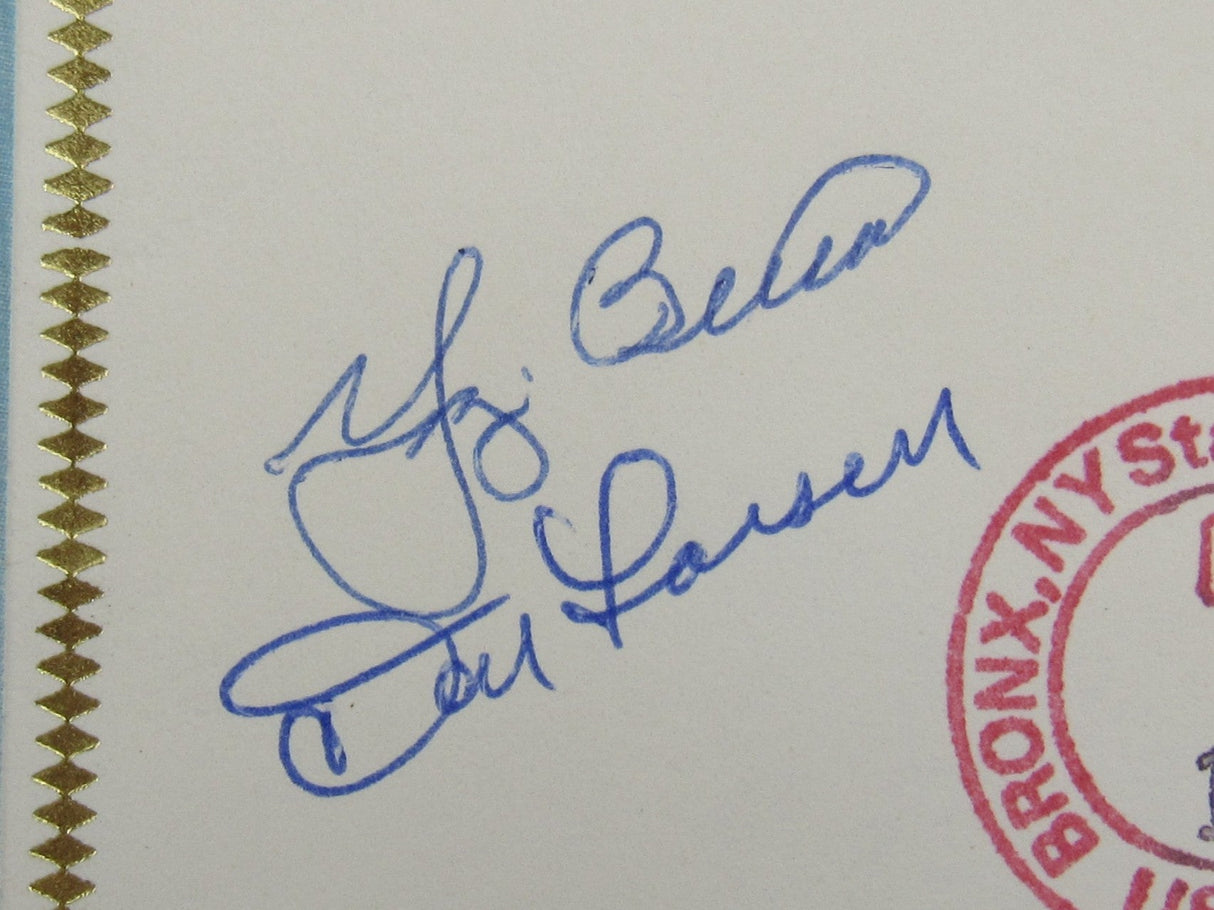 Yogi Berra
Don Larsen
BRONX, NY Sta